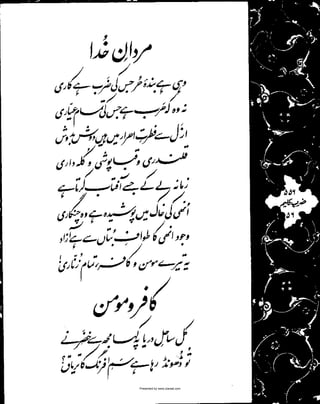 مردانِ خُدا
وہی ہے بندۂ حُر جس کی ضَرب ہے کاری
نہ وہ کہ حَرب ہے جس کی تمام عیّاری
ازَل سے فطرتِ احرار میں ہیں دوش بدوش
قلندری و قبا پوشی و کُلہ داری
زمانہ لے کے جسے آفتاب کرتا ہے
اُنھی کی خاک میں پوشیدہ ہے وہ چنگاری
وجود اُنھی کا طوافِ بُتاں سے ہے آزاد
یہ تیرے مومن و کافر تمام زُنّاری!
کافر و مومن
کل ساحلِ دریا پہ کہا مجھ سے خضَر نے
تُو ڈھُونڈ رہا ہے سَمِ افرنگ کا تریاق؟
۵۵۶
ضربِ کلیم
۵۶
Presented by www.ziaraat.com